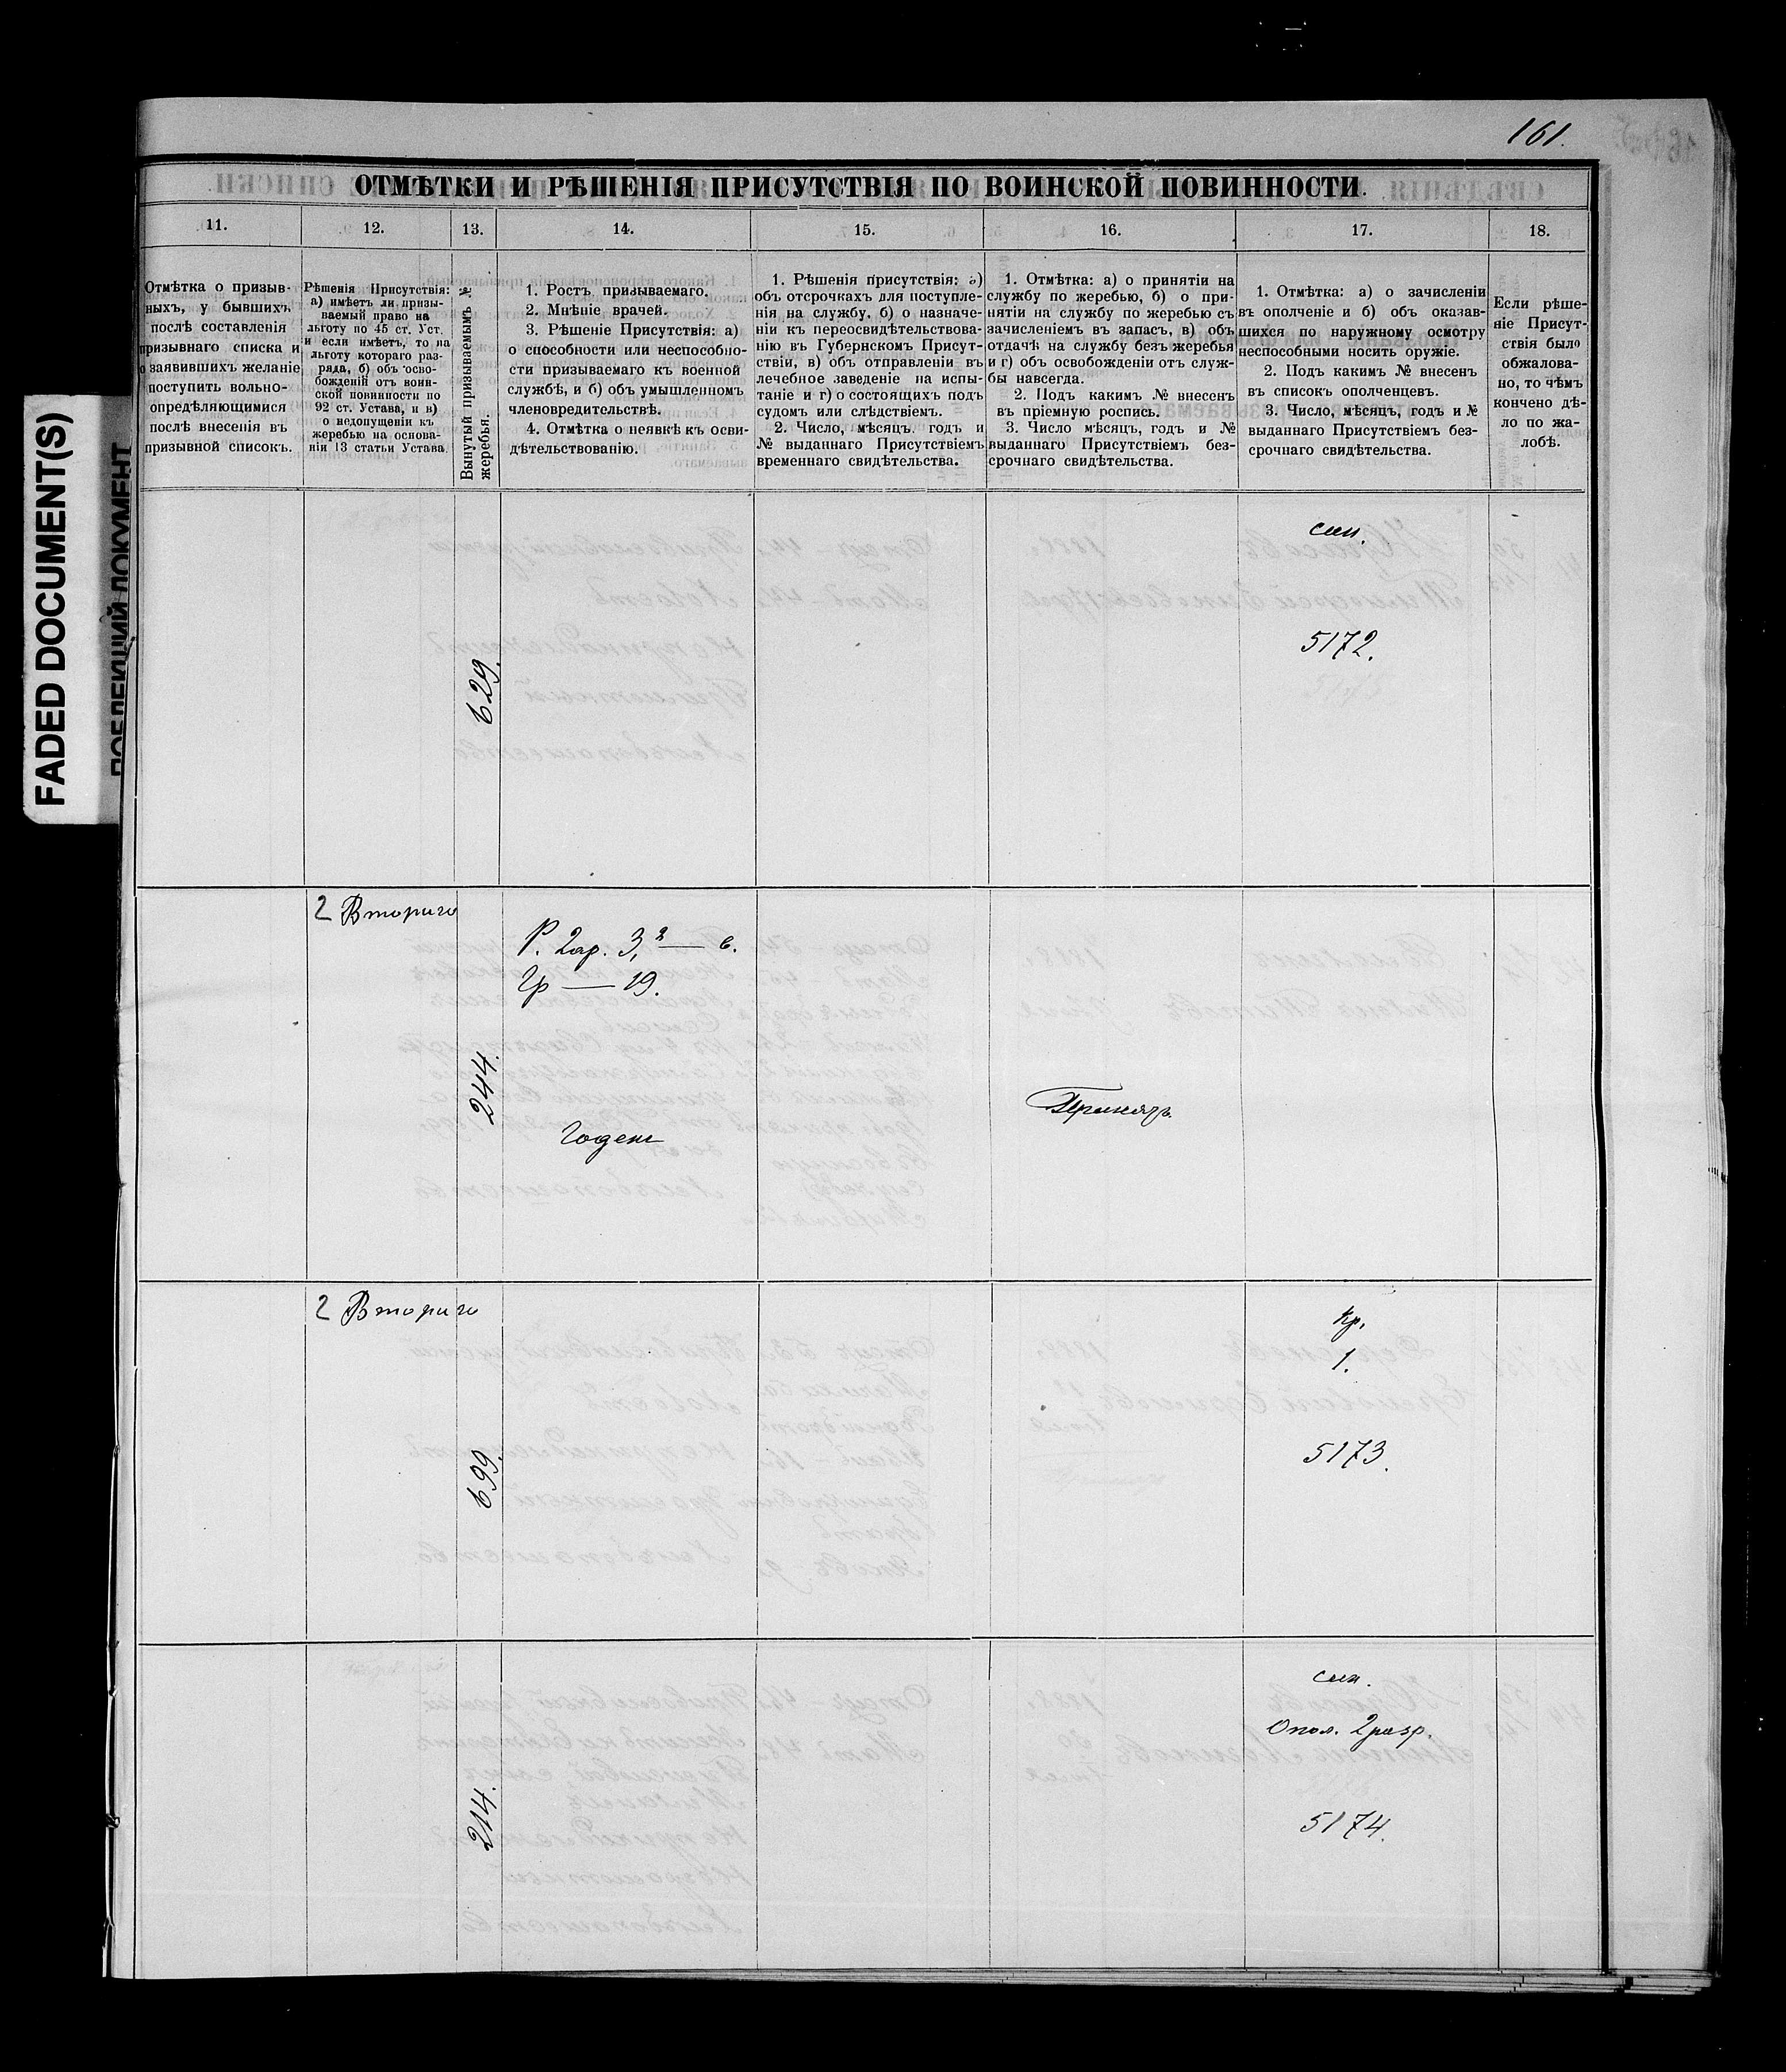 161.
ОТМѢТКИ И РѢШЕНІЯ ПРИСУТСТВІЯ ПО ВОИНСКОЙ ПОВИННОСТИ.
11.
12.
13.
14.
15.
16.
17.
18.
Отмѣтка о призыв-
ныхъ, у бывшихъ
послѣ составленія
призывнаго списка и
о заявившихъ желаніе
поступить вольно-
опредѣляющимися
послѣ внесенія въ
призывной списокъ.
Рѣшенія Присутствія:
а) имѣетъ ли призы-
ваемый право на
льготу по 45 ст. Уст.
и если имѣетъ, то на
льготу котораго раз-
ряда, б) объ осво-
божденіи отъ воин-
ской повинности по
92 ст. Устава, и в)
о недопущеніи къ
жеребью на основа-
ніи 13 статьи Устава.
Вынутый призываемымъ №
жеребья.
1. Ростъ призываемаго.
2. Мнѣніе врачей.
3. Рѣшеніе Присутствія: а)
о способности или неспособно-
сти призываемаго къ военной
службѣ, и б) объ умышленномъ
членовредительствѣ.
4. Отмѣтка о неявкѣ къ осви-
дѣтельствованію.
1. Рѣшенія присутствія: а)
объ отсрочкахъ для поступле-
нія на службу, б) о назначе-
ніи къ переосвидѣтельствова-
нію въ Губернскомъ Присут-
ствіи, в) объ отправленіи въ
лечебное заведеніе на испы-
таніе и г) о состоящихъ подъ
судомъ или слѣдствіемъ.
2. Число, мѣсяцъ, годъ и
№ выданнаго Присутствіемъ
временнаго свидѣтельства.
1. Отмѣтка: а) о принятіи на
службу по жеребью, б) о при-
нятіи на службу по жеребью съ
зачисленіемъ въ запасъ, в) объ
отдачѣ на службу безъ жеребья
и г) объ освобожденіи отъ служ-
бы навсегда.
2. Подъ какимъ № внесенъ
въ пріемную роспись.
3. Число мѣсяцъ, годъ и №
выданнаго Присутствіемъ без-
срочнаго свидѣтельства.
1. Отмѣтка: а) о зачисленіи
въ ополченіе и б) объ оказав-
шихся по наружному осмотру
неспособными носить оружіе.
2. Подъ какимъ № внесенъ
въ списокъ ополченцевъ.
3. Число, мѣсяцъ, годъ и №
выданнаго Присутствіемъ без-
срочнаго свидѣтельства.
Если рѣше-
ніе Присут-
ствія было
обжалова-
но, то чѣмъ
кончено дѣ-
ло по жа-
лобѣ.
FADED DOCUMENT(S)
629.
5172.
2 Втораго
244.
Р. 2ар. 3,2 — в.
Гр — 19.
Годенъ
Принятъ.
2 Втораго
699.
Кр.
1.
5173.
214.
Опол. 2 разр.
5174.